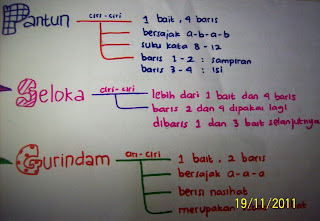 Pantun
ciri-ciri
1 bait, 4 baris
bersajak a-b-a-b
suku kata 8-12
baris 1-2 : sampiran
baris 3-4 : isi
Seloka
ciri-ciri
lebih dari 1 bait dan 4 baris
baris 2 dan 4 dipakai lagi
dibaris 1 dan 3 bait selanjutnya
Gurindam
ciri-ciri
1 bait, 2 baris
bersajak a-a-a
berisi nasihat
merupakan
19/11/2011